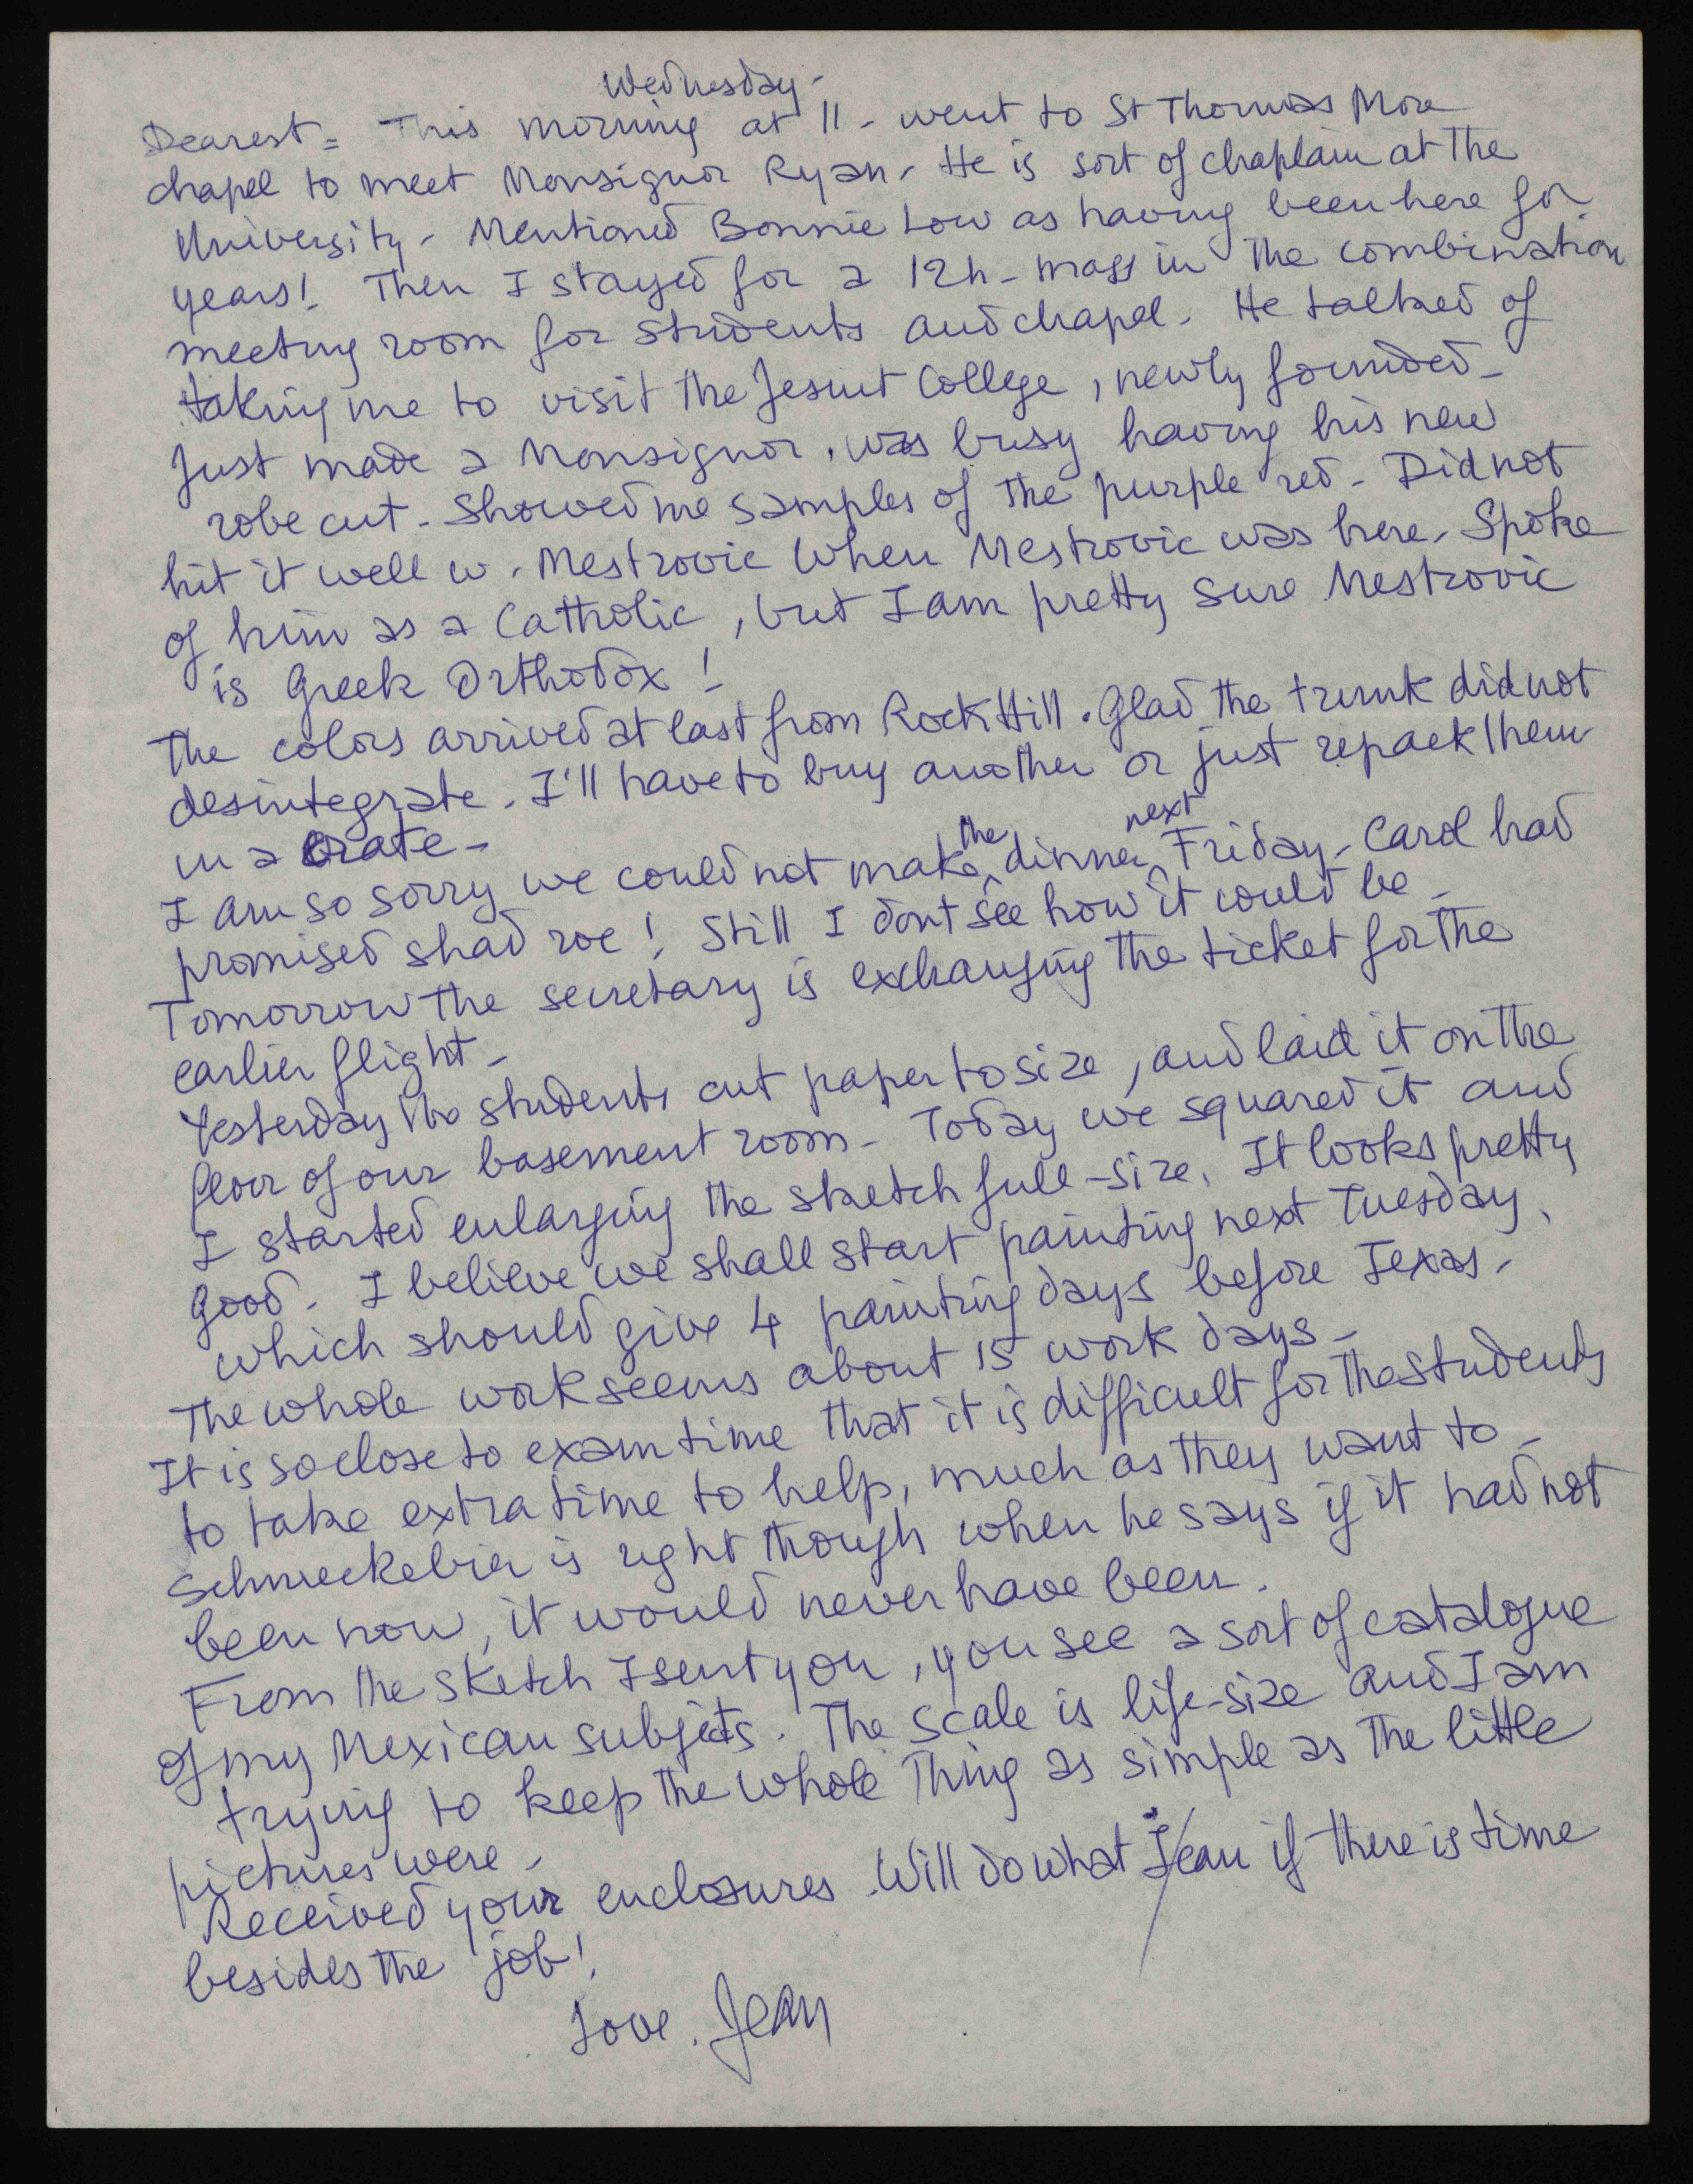 Wednesday -
Dearest = This morning at 11 - went to St Thomas More
chapel to meet Monsignor Ryan - He is sort of chaplain at the
University - Mentioned Bonnie Low as having been here for
years! Then I stayed for a 12h - mass in the combination
meeting room for students and chapel. He talked of
taking me to visit the Jesuit College, newly founded -
Just made a Monsignor, was busy having his new
robe cut - Showed me samples of the purple red - Did not
hit it well w. Mestrovic when Mestrovic was here. Spoke
of him as a Catholic, but I am pretty sure Mestrovic
is Greek Orthodox!
The colors arrived at last from Rock Hill. Glad the trunk did not
desintegrate. I'll have to buy another or just repack them
in a crate -
I am so sorry we could not make the dinner next Friday - Carol had
promised shad roe! Still I dont see how it could be -
Tomorrow the secretary is exchanging the ticket for the
earlier flight -
Yesterday the students cut paper to size, and laid it on the
floor of our basement room - Today we squared it and
I started enlarging the sketch full-size. It looks pretty
good. I believe we shall start painting next Tuesday,
which should give 4 painting days before Texas.
The whole work seems about 15 work days -
It is so close to exam time that it is difficult for the students
to take extra time to help, much as they want to -
Schmeckebier is right though when he says if it had not
been now, it would never have been.
From the sketch I sent you, you see a sort of catalogue
of my Mexican subjects. The scale is life-size and I am
trying to keep the whole thing as simple as the little
pictures were -
Received your enclosures. Will do what I can if there is time
besides the job!
Love. Jean